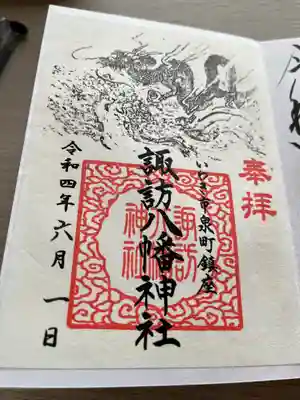 奉拝
いわき市泉町鎮座
諏訪八幡神社
令和四年六月一日
諏訪
八幡
神社